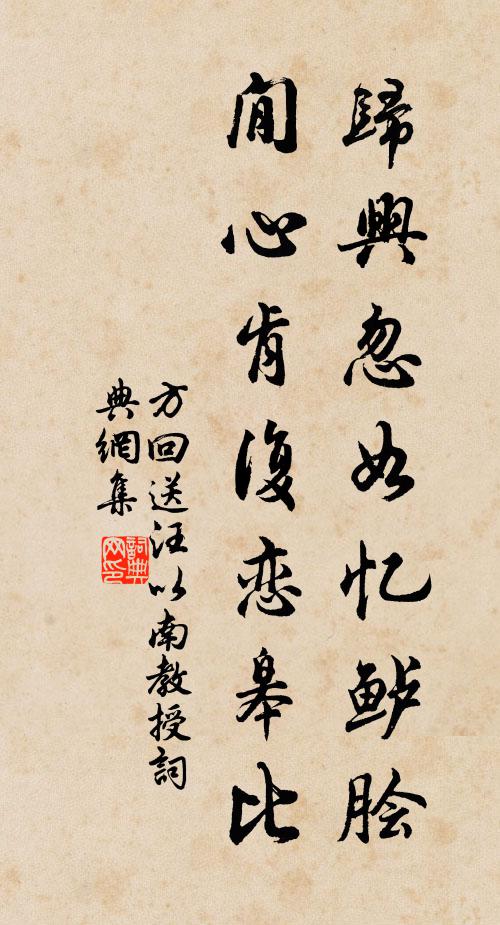 歸興忽如忆鲈脍
闲心肯復恋皋比
方回送汪以南教授詞
典網集
詞典网印